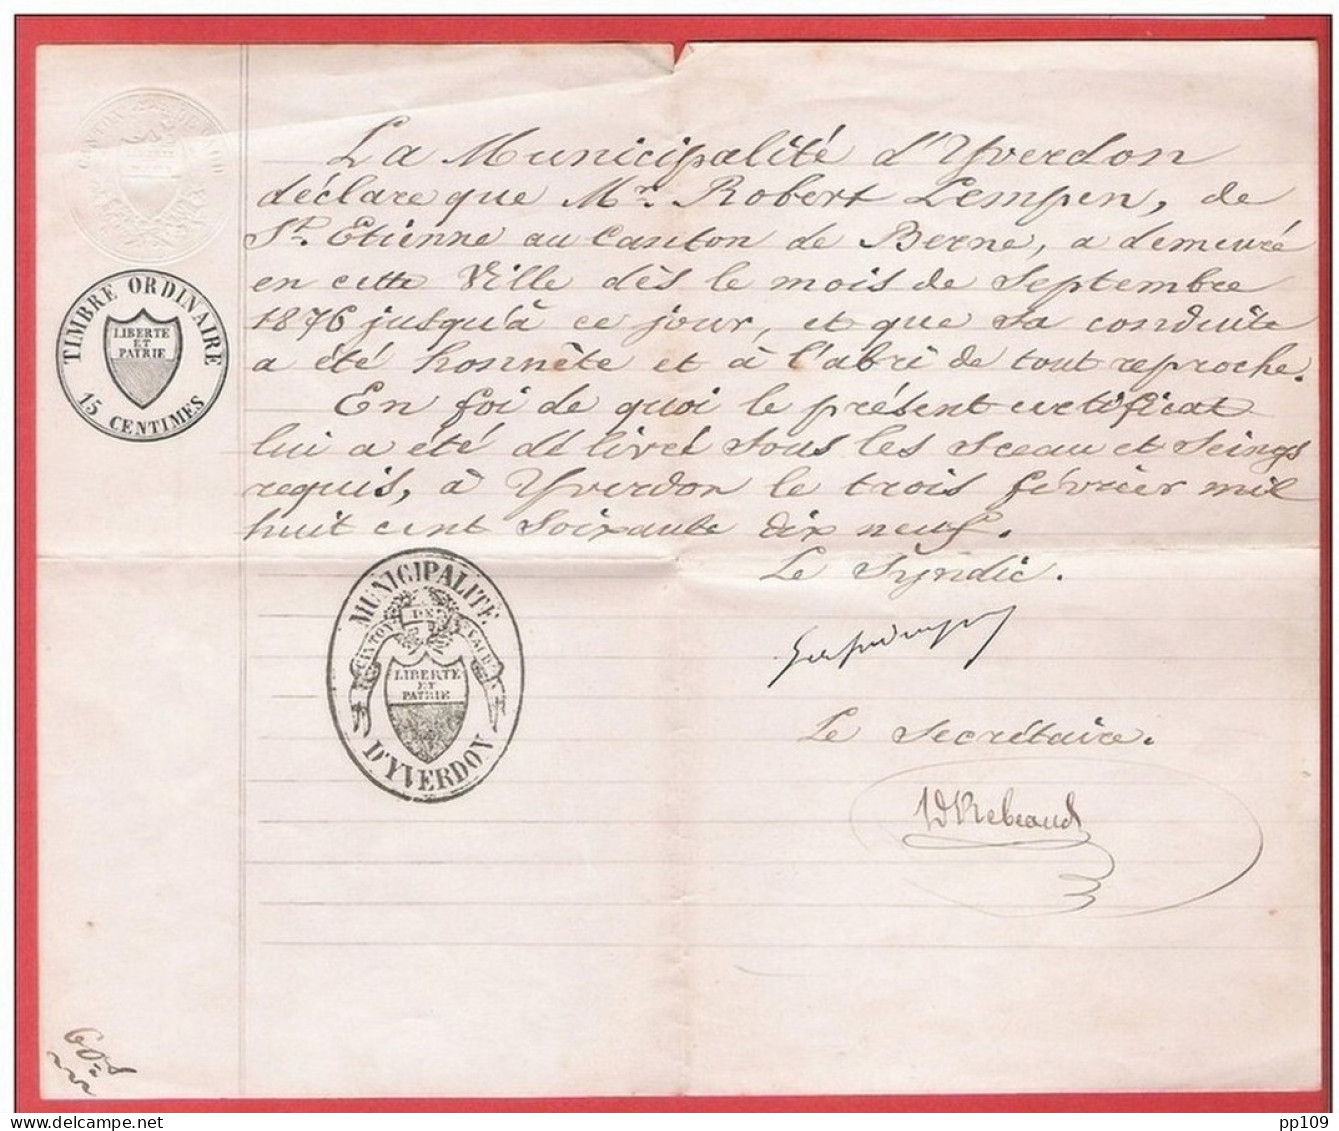 CANTON DE VAUD
LIBERTE
ET
PATRIE
TIMBRE ORDINAIRE
LIBERTE
ET
PATRIE
15 CENTIMES
La Municipalité d'Yverdon
déclare que Mr. Robert Lempen, de
St. Etienne au Canton de Berne, a demeuré
en cette Ville dès le mois de Septembre
1876 jusqu'à ce jour, et que sa conduite
a été honnête et à l'abri de tout reproche.
En foi de quoi le présent certificat
lui a été délivré sous les Sceau et Seings
requis, à Yverdon le trois février mil
huit cent soixante dix neuf.
Le Syndic.
MUNICIPALITÉ
CANTON DE VAUD
LIBERTE
ET
PATRIE
D'YVERDON
Le Secrétaire.
Rebeaud
60
delcampe.net
pp109